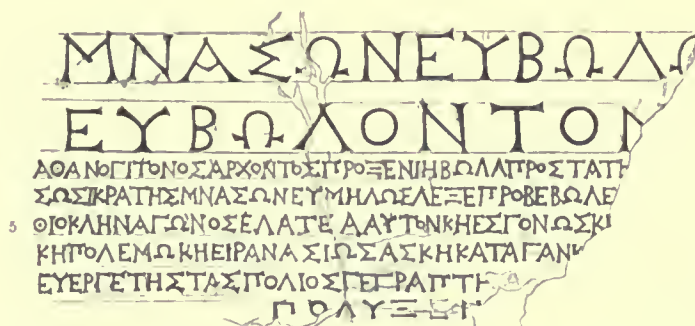 ΜΝΑΣΩΝΕΥΒΩΛΩ
ΕΥΒΩΛΟΝΤΟΝ
ΑΘΑΝΟΓΙΤΟΝΟΣΑΡΧΟΝΤΟΣΠΡΟΞΕΝΙΗΒΩΛΛΑΠΡΟΣΤΑΤΗ
ΣΩΣΙΚΡΑΤΗΣΜΝΑΣΩΝΕΥΜΗΛΩΕΛΕΞΕΠΡΟΒΕΒΩΛΕ
5 ΘΙΟΚΛΗΝΑΓΩΝΟΣΕΛΑΤΕ ΑΑΥΤΟΝΚΗΕΣΓΟΝΩΣΚΙ
ΚΗΠΟΛΕΜΩΚΗΕΙΡΑΝΑΣΙΩΣΑΣΚΗΚΑΤΑΓΑΝΚ
ΕΥΕΡΓΕΤΗΣΤΑΣΠΟΛΙΟΣΓΕΓΡΑΠΤΗ
ΠΟΛΥΞΕΝ